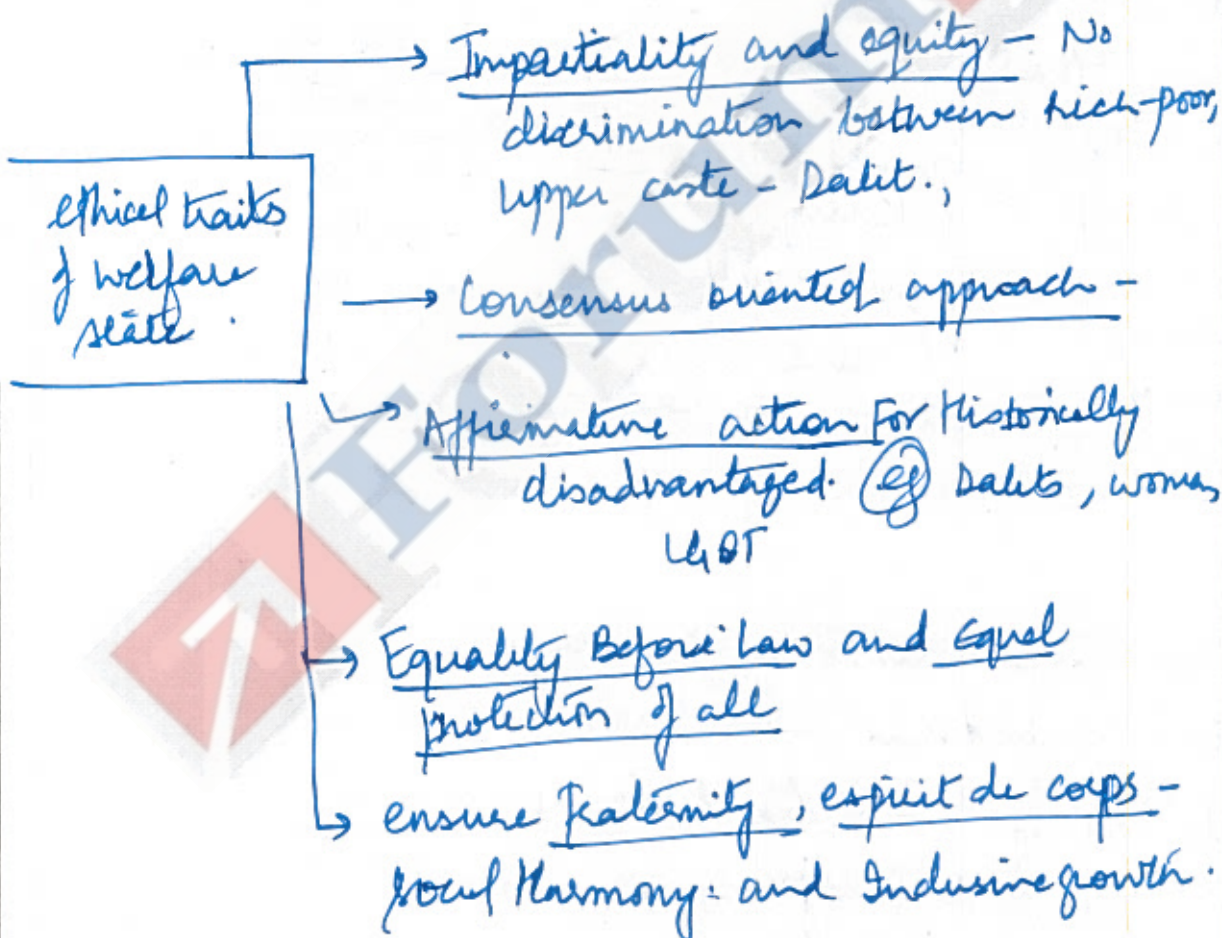 Impartiality and equity - No
discrimination between rich-poor,
upper caste - Dalit.,
ethical traits
of welfare
state.
Consensus oriented approach -
Affirmative action For Historically
disadvantaged. eg Dalits, women,
LGBT
Equality Before Law and Equal
protection of all
ensure Fraternity, espirit de corps -
social Harmony. and Inclusive growth.
Forum